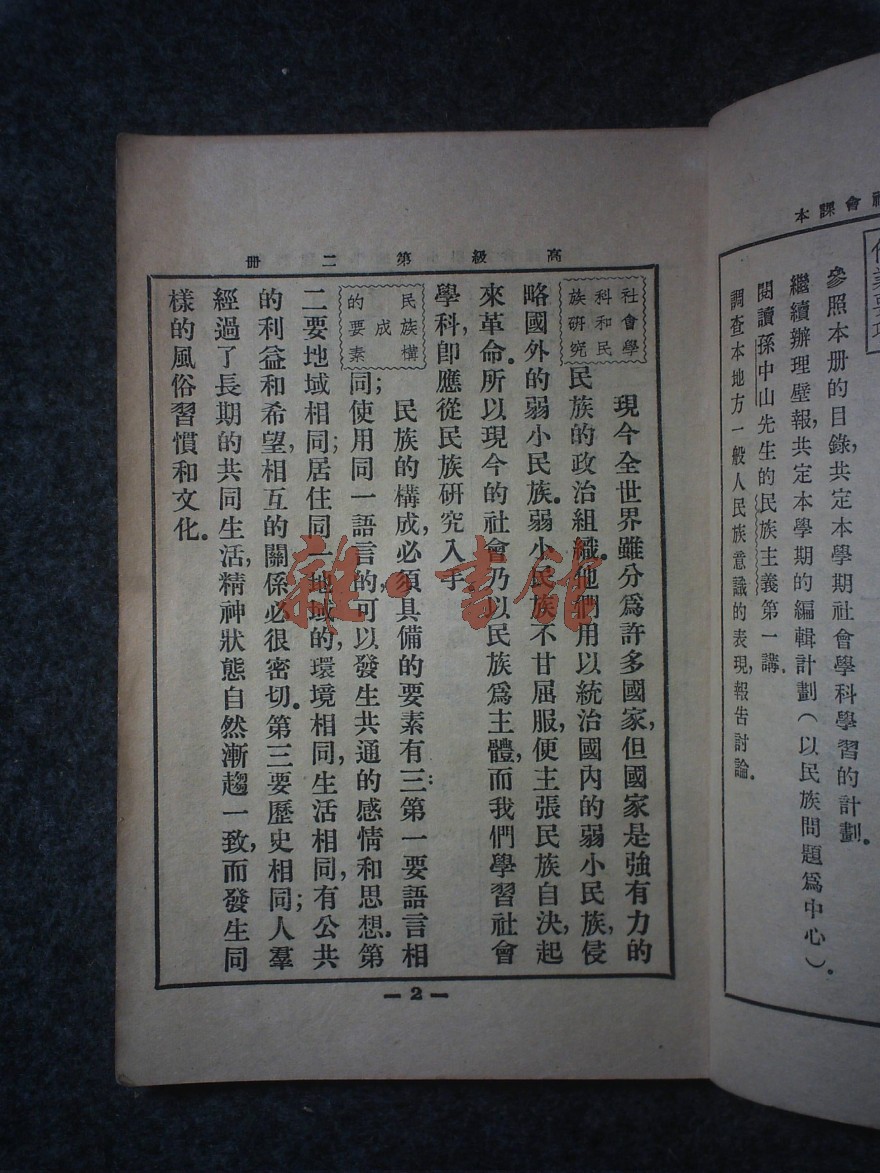 會課本
參照本册的目錄,共定本學期社會學科學習的計劃.
繼續辦理壁報,共定本學期的編輯計劃(以民族問題爲中心).
閱讀孫中山先生的民族主義第一講.
調查本地方一般人民族意識的表現,報告討論.
高級第二冊
社會學
科和民
族研究
現今全世界雖分爲許多國家,但國家是強有力的
民族的政治組織.他們用以統治國內的弱小民族,侵
略國外的弱小民族.弱小民族不甘屈服,便主張民族自決,起
來革命.所以現今的社會乃以民族爲主體,而我們學習社會
學科,卽應從民族研究入手.
民族構
成
的要素
民族的構成,必須具備的要素有三:第一要語言相
同;使用同一語言的,可以發生共通的感情和思想.第
二要地域相同;居住同一地域的,環境相同,生活相同,有公共
的利益和希望,相互的關係必很密切.第三要歷史相同;人羣
經過了長期的共同生活,精神狀態自然漸趨一致,而發生同
樣的風俗習慣和文化.
—2—
雜·書館